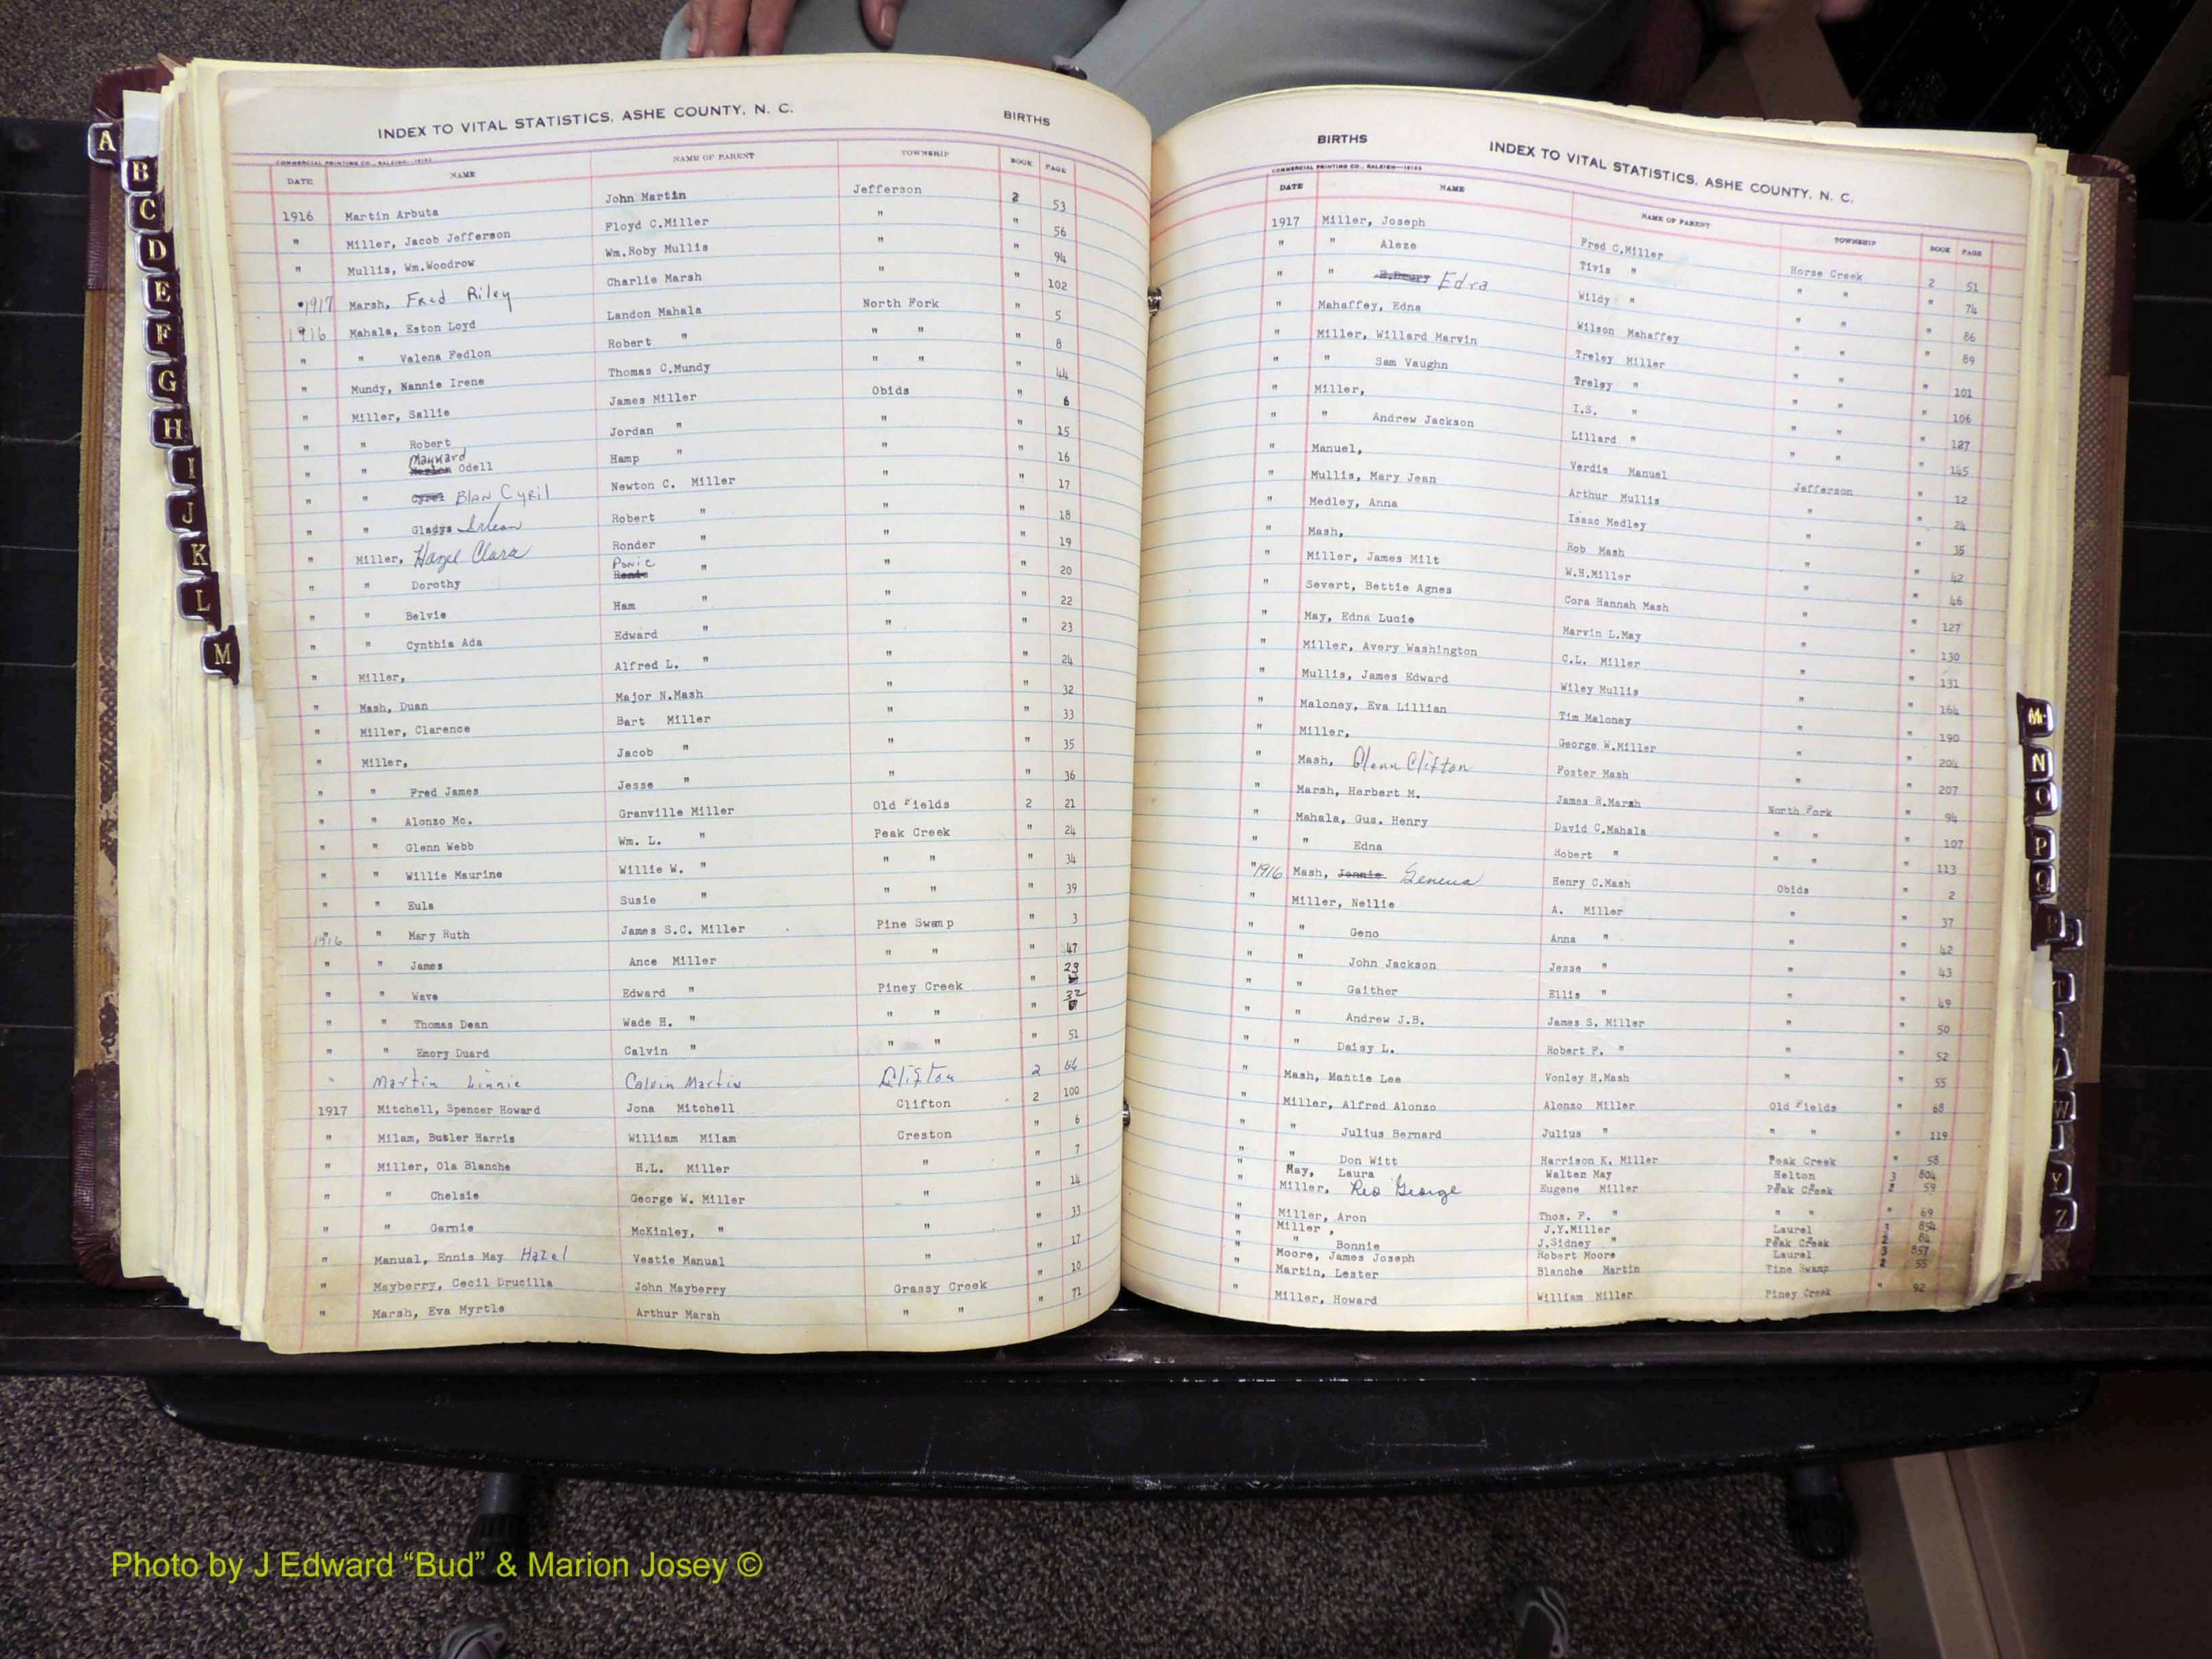 INDEX TO VITAL STATISTICS, ASHE COUNTY, N. C. BIRTHS
COMMERCIAL PRINTING CO., RALEIGH—16153
DATE NAME NAME OF PARENT TOWNSHIP BOOK PAGE
1916 Martin Arbuta John Martin Jefferson 2 53
" Miller, Jacob Jefferson Floyd C.Miller " " 56
" Mullis, Wm.Woodrow Wm.Roby Mullis " " 94
"1917 Marsh, Fred Riley Charlie Marsh " " 102
1916 Mahala, Eston Loyd Landon Mahala North Fork " 5
" " Valena Fedlon Robert " " " " 8
" Mundy, Nannie Irene Thomas C.Mundy " " " 44
" Miller, Sallie James Miller Obids " 6
" " Robert Jordan " " " 15
" " Maynard Odell Hamp " " " 16
" " Cyrel BLAN CYRIL Newton C. Miller " " 17
" " Gladys Irlean Robert " " " 18
" Miller, Hazel Clara Ronder " " " 19
" " Dorothy Ponic Ronic " " " 20
" " Belvie Ham " " " 22
" " Cynthia Ada Edward " " " 23
" Miller, Alfred L. " " " 24
" Mash, Duan Major N.Mash " " 32
" Miller, Clarence Bart Miller " " 33
" Miller, Jacob " " " 35
" " Fred James Jesse " " " 36
" " Alonzo Mc. Granville Miller Old Fields 2 21
" " Glenn Webb Wm. L. " Peak Creek " 24
" " Willie Maurine Willie W. " " " " 34
" " Eula Susie " " " " 39
1916 " Mary Ruth James S.C. Miller Pine Swamp " 3
" " James Ance Miller " " " 47
" " Wave Edward " Piney Creek " 23
" " Thomas Dean Wade H. " " " " 32
" " Emory Duard Calvin " " " 51
" Martin Linnie Calvin Martin Clifton 2 66
1917 Mitchell, Spencer Howard Jona Mitchell Clifton 2 100
" Milam, Butler Harris William Milam Creston " 6
" Miller, Ola Blanche H.L. Miller " " 7
" " Chelsie George W. Miller " 14
" " Garnie McKinley, " " " 33
" Manual, Ennis May Hazel Vestie Manual " " 17
" Mayberry, Cecil Drucilla John Mayberry Grassy Creek " 10
" Marsh, Eva Myrtle Arthur Marsh " " " 71
BIRTHS INDEX TO VITAL STATISTICS, ASHE COUNTY, N. C.
COMMERCIAL PRINTING CO., RALEIGH—16153
DATE NAME NAME OF PARENT TOWNSHIP BOOK PAGE
1917 Miller, Joseph Fred C.Miller Horse Creek 2 51
" " Aleze Tivis " " " " 74
" " Edra Wildy " " " " 86
" Mahaffey, Edna Wilson Mahaffey " " " 89
" Miller, Willard Marvin Treley Miller " " " 101
" " Sam Vaughn Treley " " " " 106
" Miller, I.S. " " " " 127
" " Andrew Jackson Lillard " " " " 145
" Manuel, Verdie Manuel Jefferson " 12
" Mullis, Mary Jean Arthur Mullis " " 24
" Medley, Anna Isaac Medley " " 35
" Mash, Rob Mash " " 42
" Miller, James Milt W.H.Miller " " 46
" Severt, Bettie Agnes Cora Hannah Mash " " 127
" May, Edna Lucie Marvin L.May " " 130
" Miller, Avery Washington C.L. Miller " " 131
" Mullis, James Edward Wiley Mullis " " 164
" Maloney, Eva Lillian Tim Maloney " " 190
" Miller, George W.Miller " " 204
" Mash, Glenn Clifton Foster Mash " " 207
" Marsh, Herbert M. James R.Marsh North Fork " 94
" Mahala, Gus. Henry David C.Mahala " " " 107
" " Edna Robert " " " " 113
"1916 Mash, Jennie Geneva Henry C.Mash Obids " 2
" Miller, Nellie A. Miller " " 37
" " Geno Anna " " " 42
" " John Jackson Jesse " " " 43
" " Gaither Ellis " " " 49
" " Andrew J.B. James S. Miller " " 50
" " Daisy L. Robert F. " " " 52
" Mash, Mantie Lee Vonley H.Mash " " 55
" Miller, Alfred Alonzo Alonzo Miller Old Fields " 68
" " Julius Bernard Julius " " " " 119
" " Don Witt Harrison K. Miller Peak Creek " 58
" May, Laura Walter May Helton 3 804
" Miller, Reo George Eugene Miller Peak Creek 2 59
" Miller, Aron Thos. F. " " " " 69
" Miller, J.Y.Miller Laurel 3 854
" " Bonnie J.Sidney " Peak Creek 2 84
" Moore, James Joseph Robert Moore Laurel 3 857
" Martin, Lester Blanche Martin Pine Swamp 2 55
" Miller, Howard William Miller Piney Creek " 92
A
B
C
D
E
F
G
H
I
J
K
L
M
Mc
N
O
P
Q
R
S
T
V
W
Y
Z
Photo by J Edward “Bud” & Marion Josey ©